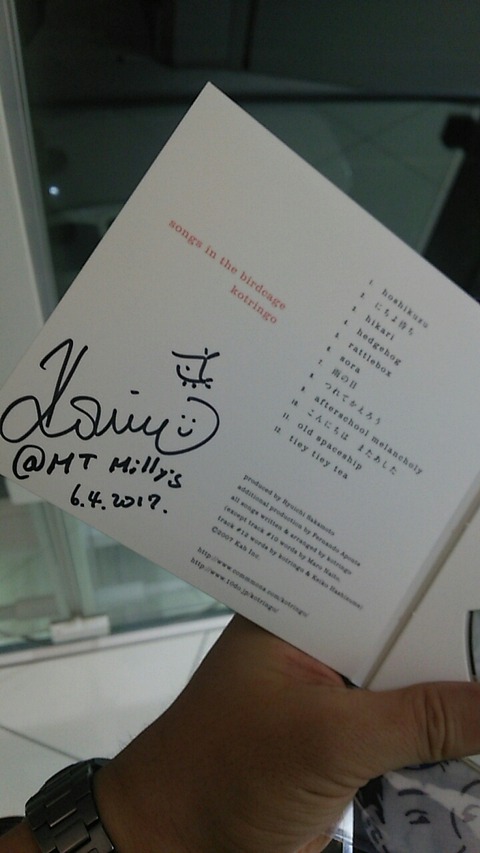 songs in the birdcage
kotringo
1. hoshikuzu
2. にちよ待ち
3. hikari
4. hedgehog
5. rattlebox
6. sora
7. 雨の日
8. つれてかえろう
9. afterschool melancholy
10. こんにちは またあした
11. old spaceship
12. tiey tiey tea
@MT Milly's
6.4.2017.
produced by Ryuichi Sakamoto
additional production by Fernando Aponte
all songs written & arranged by kotringo
(except track #10 words by Maro Naito,
track #12 words by kotringo & Keiko Hashimoto)
©2007 Kab Inc.
http://www.commmons.com/kotringo/
http://www.yodo.jp/kotringo/